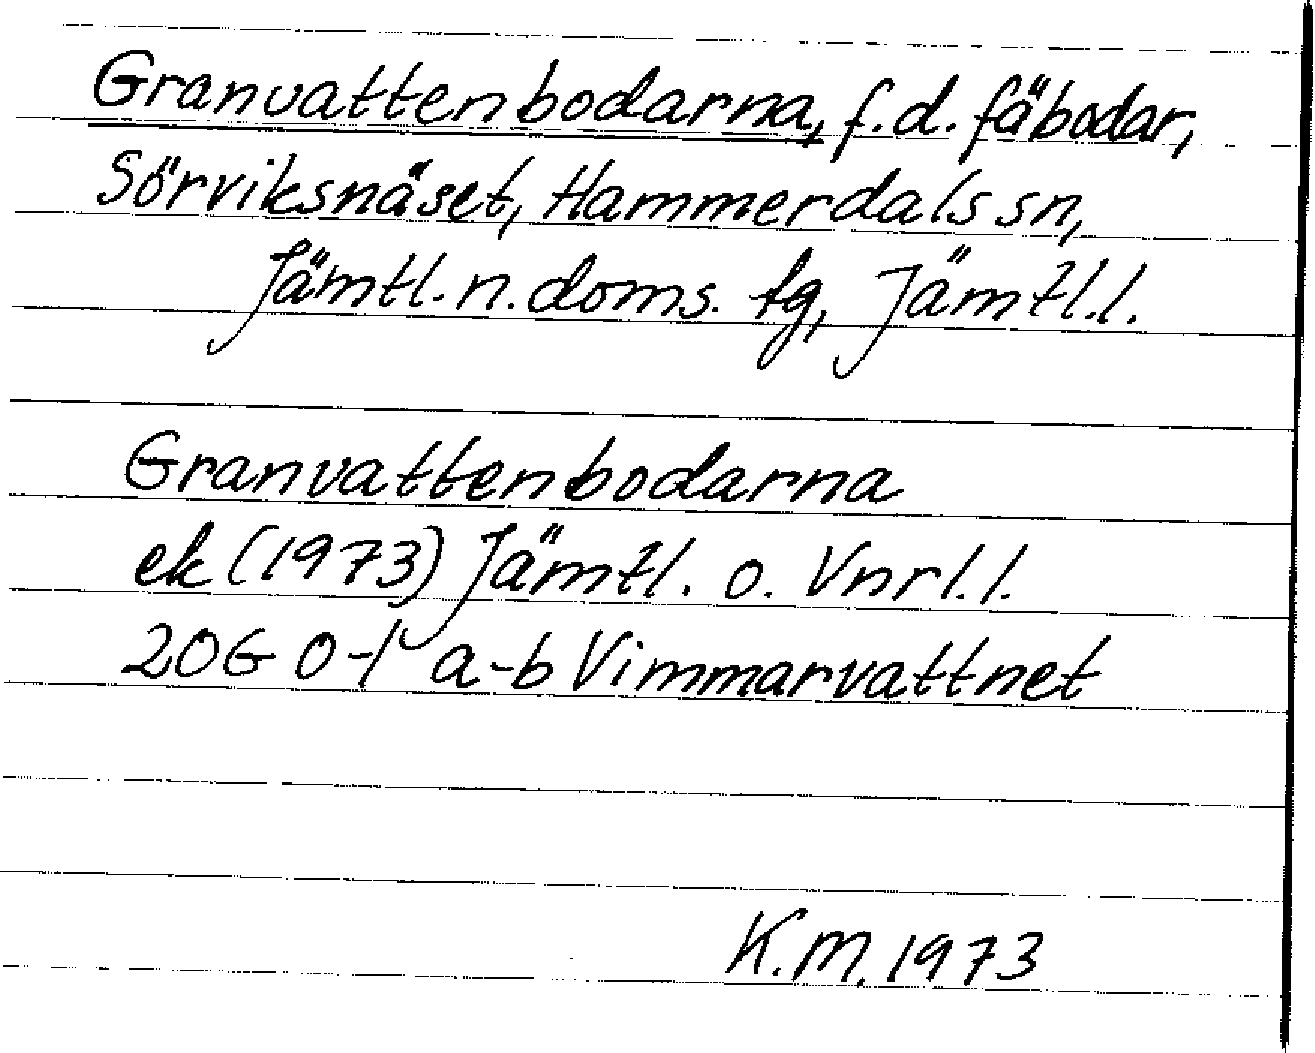 Granvattenbodarna, f.d. fäbodar,
Sörviksnäset, Hammerdals sn,
Jämtl. n. doms. tg, Jämtl. l.
Granvattenbodarna
ek (1973) Jämtl. o. Vnrl. l.
20G 0-1 a-b Vimmarvattnet
K.M. 1973